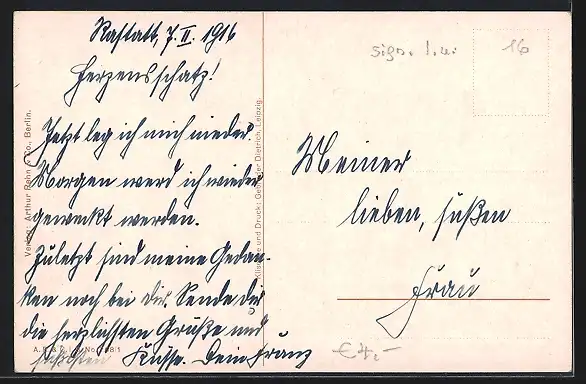 Rastatt, 7. II. 1916
Herzensschatz!
Jetzt leg ich mich nieder.
Morgen werd ich wieder
geweckt werden.
Zuletzt sind meine Gedan-
ken noch bei dir. Sende dir
die herzlichsten Grüße und
süßesten Küsse. Dein Franz
Meiner
lieben, süßen
Frau
sign. l. u.
16
€ 4,-
Verlag: Arthur Rehn & Co., Berlin.
Klischee und Druck: Gebrüder Dietrich, Leipzig.
No.